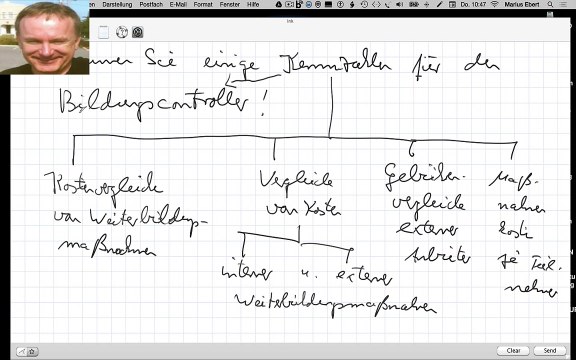 Darstellung Postfach E-Mail Format Fenster Hilfe Do. 10:47 Marius Ebert
Ink
Sie einige Kennzahlen für den
Bildungscontroller!
Kostenvergleiche
von Weiterbildungs-
maßnahmen
Vergleiche
von Kosten
interner u. externer
Weiterbildungsmaßnahmen
Gebühren-
vergleiche
externer
Anbieter
Maß-
nahmen
kosten
je Teil-
nehmer
Clear Send